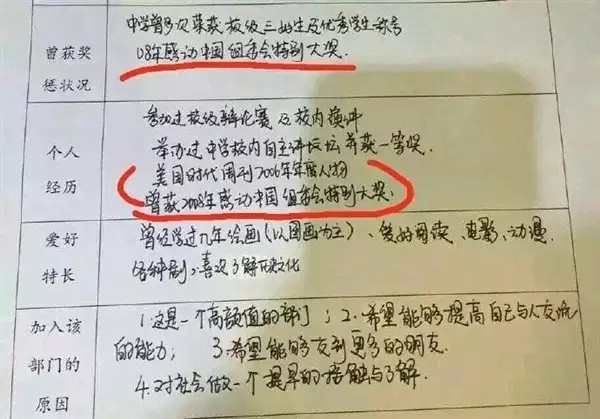 曾获奖
惩状况
中学曾多次荣获校级三好生及优秀学生称号
08年感动中国组委会特别大奖.
个人
经历
参加过校级辩论赛及校内演讲
举办过中学校内自主讲坛并获一等奖.
美国时代周刊2006年年度人物
曾获2008年感动中国组委会特别大奖.
爱好
特长
曾经学过几年绘画(以国画为主)、爱好阅读、电影、动漫
各种剧,喜欢了解文化
加入该
部门的
原因
1.这是一个高颜值的部门;2.希望能够提高自己与人交流
的能力; 3.希望能够交到更多的朋友.
4.对社会做一个提早的接触与了解.